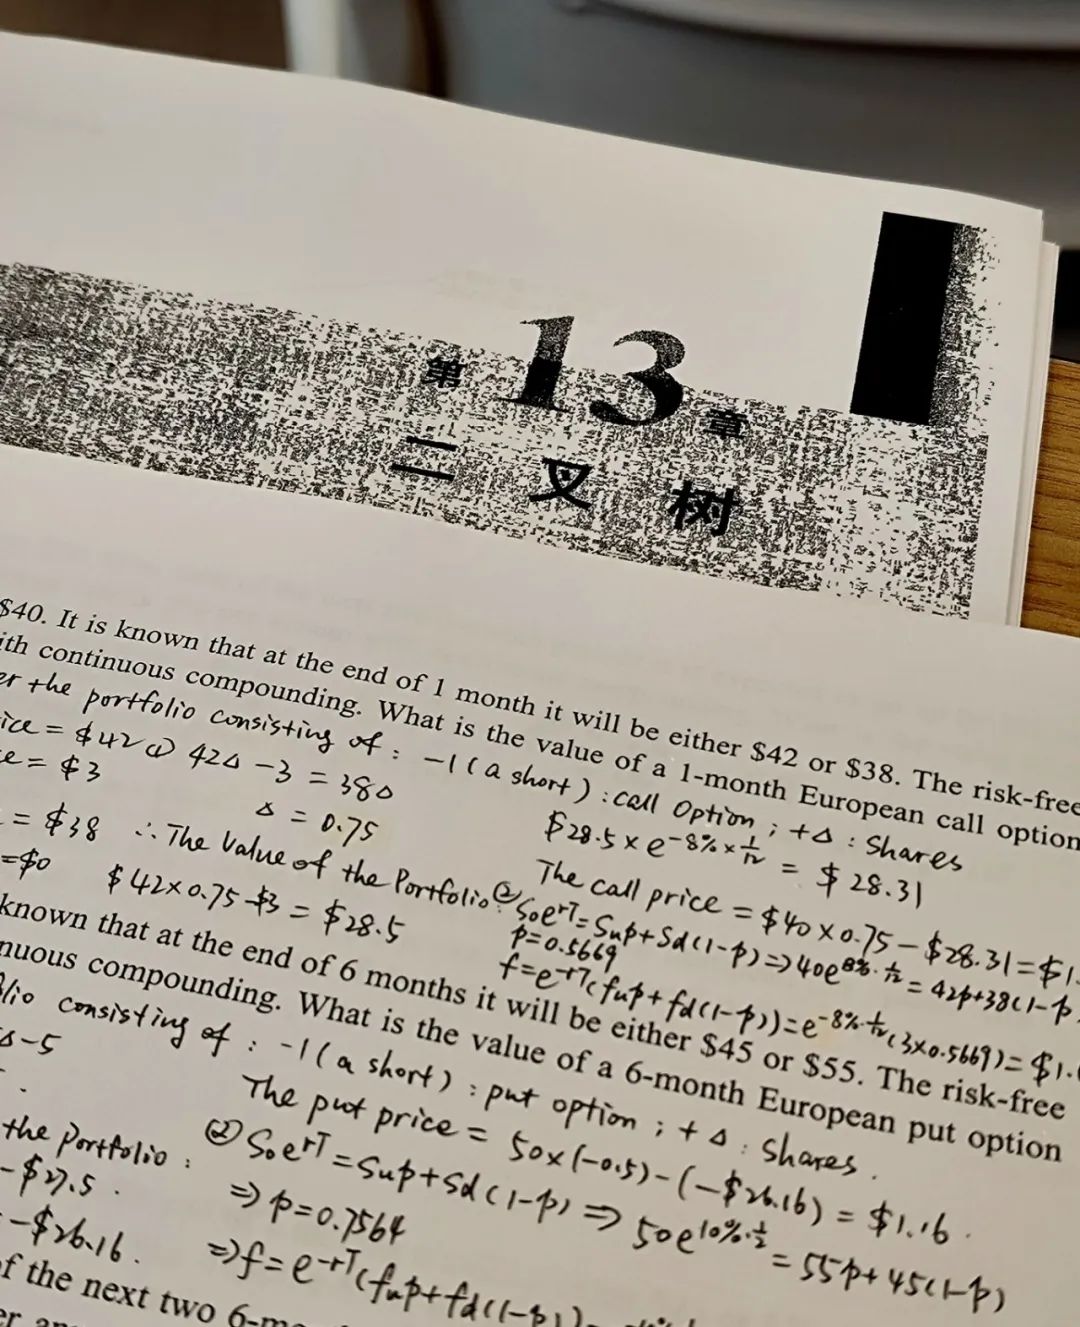 第13章
二叉树
$40. It is known that at the end of 1 month it will be either $42 or $38. The risk-free
ith continuous compounding. What is the value of a 1-month European call option
er the portfolio consisting of : -1 (a short) : call Option ; +Δ : Shares
ice = $42 ① 42Δ - 3 = 38Δ
e = $3
Δ = 0.75
$28.5 × e^-8%×1/12 = $28.31
= $38 ∴ The Value of the Portfolio :
The call price = $40 × 0.75 - $28.31 = $1.
=$0 $42×0.75-$3 = $28.5
② S₀e^rT = Sup + Sd(1-p) ⇒ 40e^8%·1/12 = 42p+38(1-p
p=0.5669
f=e^-rT(fup + fd(1-p)) = e^-8%·1/12(3×0.5669) = $1.
known that at the end of 6 months it will be either $45 or $55. The risk-free
nuous compounding. What is the value of a 6-month European put option
lio consisting of : -1 (a short) : put option ; +Δ : Shares .
Δ-5
The put price = 50×(-0.5)-(-$26.16) = $1.16 .
the Portfolio :
② S₀e^rT = Sup + Sd(1-p) ⇒ 50e^10%·1/2 = 55p+45(1-p)
-$27.5 .
⇒ p=0.7564
-$26.16 .
⇒ f = e^-rT(fup+fd(1-p))
f the next two 6-mo